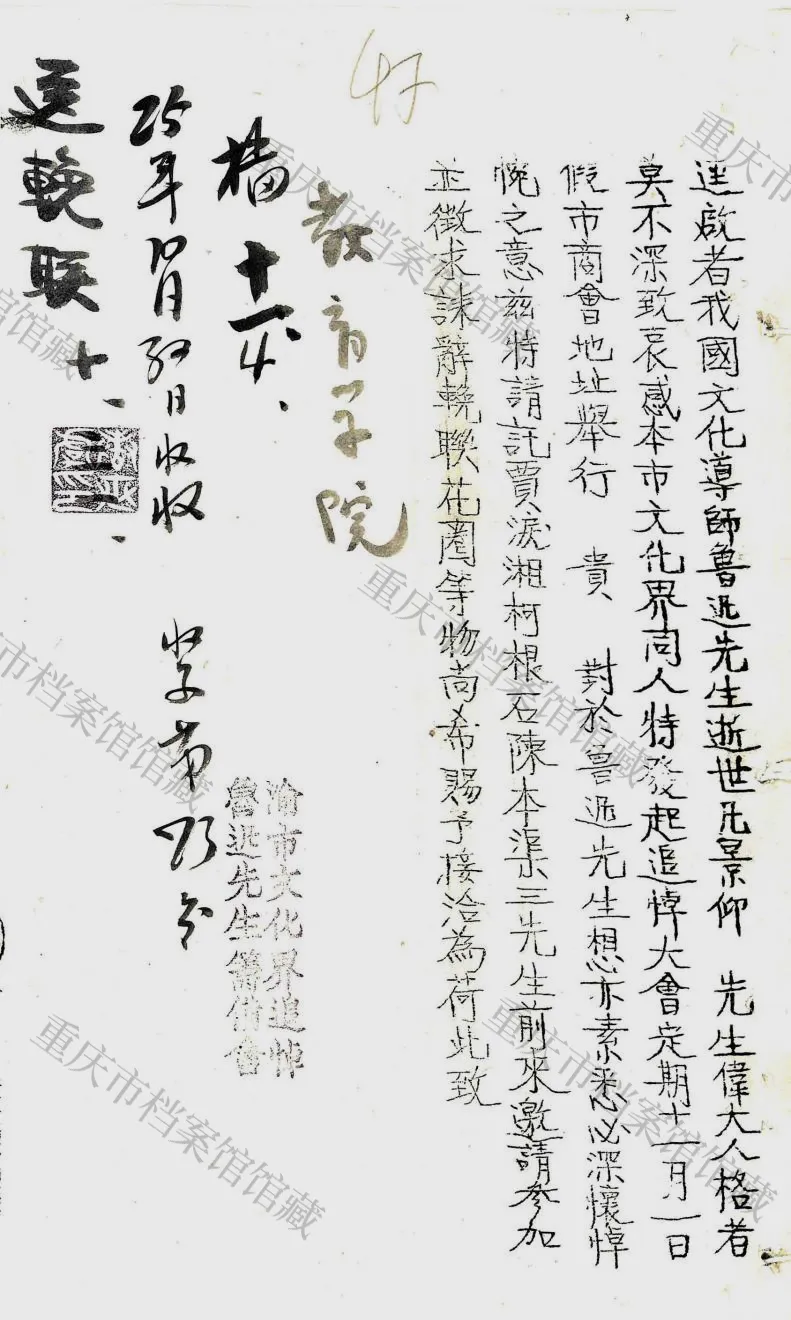 逕啟者我國文化導師魯迅先生逝世凡景仰 先生偉大人格者
莫不深致哀感本市文化界同人特發起追悼大會定期十一月一日
假市商會地址舉行 貴 對於魯迅先生想亦素悉必深懷悼
惋之意茲特請託賈淚湘柯根石陳本渠三先生前來邀請參加
並徵求誄辭輓聯花圈等物尚希賜予接洽為荷此致
教育学院
渝市文化界追悼
魯迅先生籌備會
十一
25年10月30日收
送輓联
十、三一、
重庆市档案馆馆藏